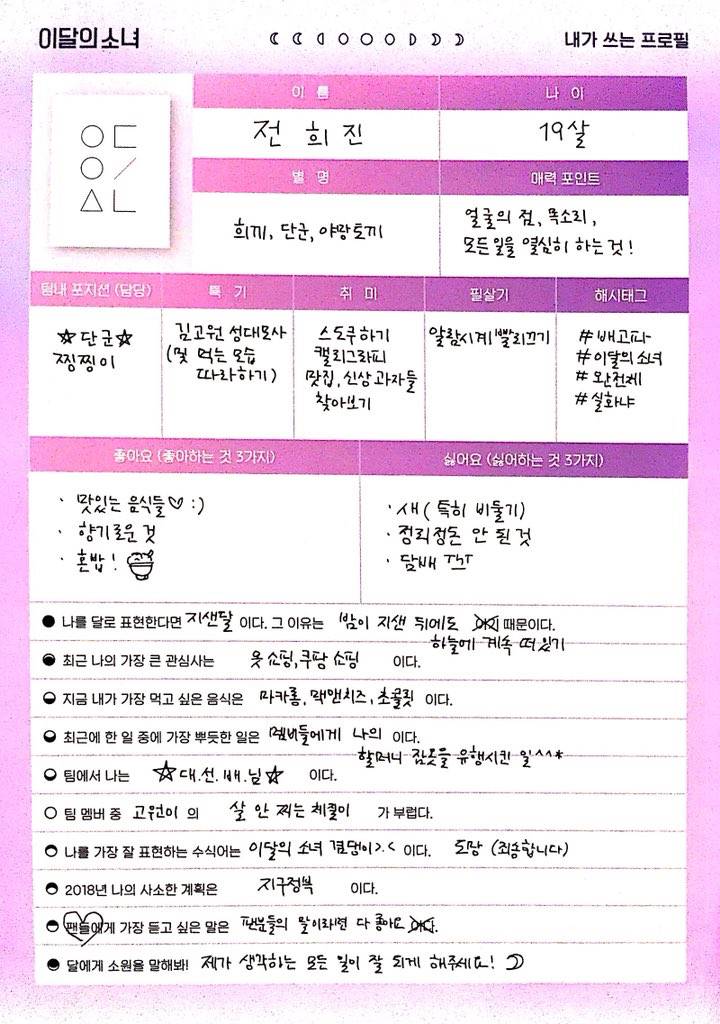 이달의 소녀
내가 쓰는 프로필
이 름
나 이
전 희 진
19살
별 명
매력 포인트
희끼, 단군, 야망토끼
얼굴의 점, 목소리,
모든 일을 열심히 하는 것!
팀내 포지션 (담당)
특 기
취 미
필살기
해시태그
☆단군☆
찡찡이
김고원 성대모사
(뭣 먹는 모습
따라하기)
스도쿠하기
캘리그라피
맛집, 신상 과자들
찾아보기
알람시계 빨리끄기
#배고파
#이달의 소녀
#완전체
#실화냐
좋아요 (좋아하는 것 3가지)
싫어요 (싫어하는 것 3가지)
· 맛있는 음식들♡ :)
· 향기로운 것
· 혼밥!
· 새 (특히 비둘기)
· 정리정돈 안 된 것
· 담배
나를 달로 표현한다면 지샌달 이다. 그 이유는 밤이 지샌 뒤에도 때문이다.
하늘에 계속 떠있기
최근 나의 가장 큰 관심사는 옷 쇼핑, 쿠팡 쇼핑 이다.
지금 내가 가장 먹고 싶은 음식은 마카롱, 맥앤치즈, 초콜릿 이다.
최근에 한 일 중에 가장 뿌듯한 일은 멤버들에게 나의 이다.
할머니 잠옷을 유행시킨 일^^*
팀에서 나는 ☆대.선.배.님☆ 이다.
팀 멤버 중 고원이 의 살 안 찌는 체질이 가 부럽다.
나를 가장 잘 표현하는 수식어는 이달의 소녀 겸댕이>.< 이다. 도망 (죄송합니다)
2018년 나의 사소한 계획은 지구정복 이다.
팬들에게 가장 듣고 싶은 말은 팬분들의 말이라면 다 좋아요
달에게 소원을 말해봐! 제가 생각하는 모든 일이 잘 되게 해주세요!